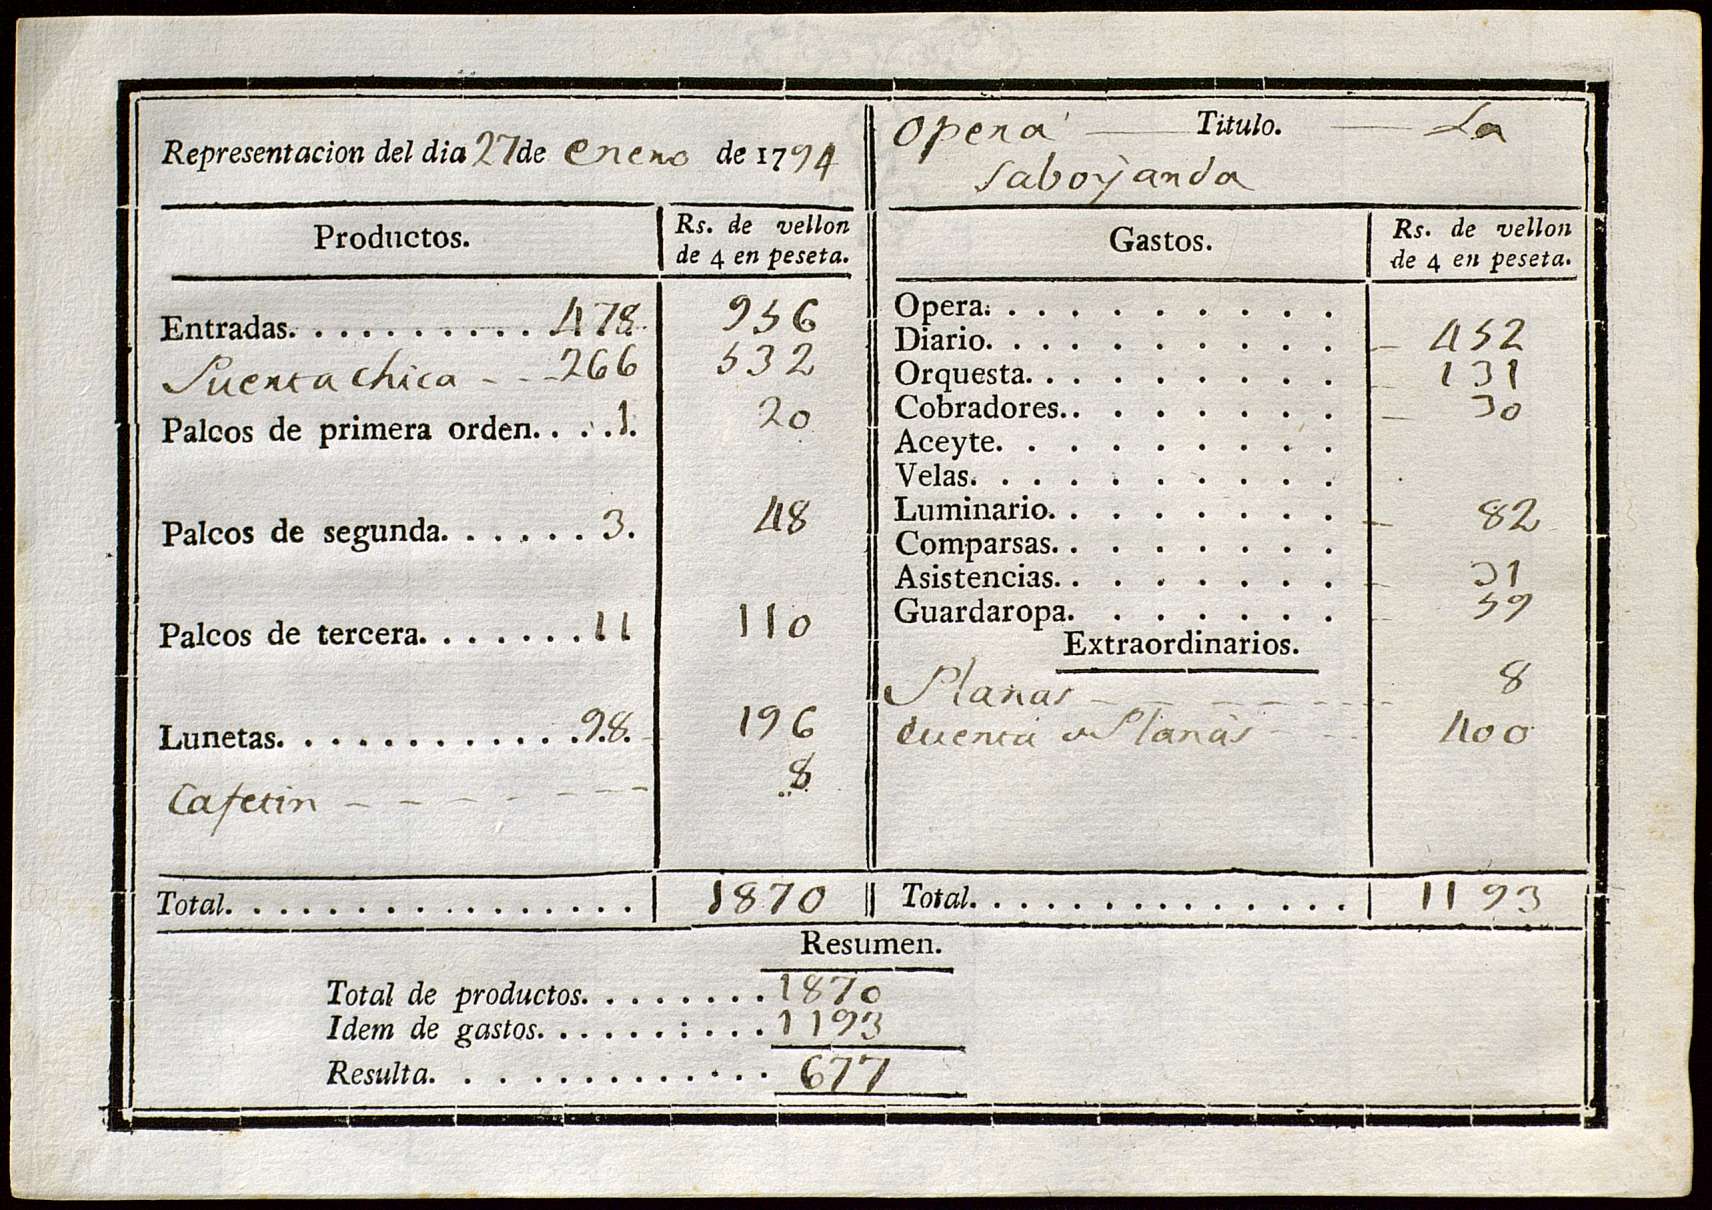 Representacion del dia 27 de enero de 1794
Opera Titulo. La
saboyanda
Productos.
Rs. de vellon
de 4 en peseta.
Entradas. . . . . . . . . . 478. 956
Puerta chica - - - 266 532
Palcos de primera orden. . . . 1. 20
Palcos de segunda. . . . . . 3. 48
Palcos de tercera. . . . . . . 11 110
Lunetas. . . . . . . . . . . . 98. 196
Cafetin - - - - - - - - 8
Total. . . . . . . . . . . . . . . . 1870
Gastos.
Rs. de vellon
de 4 en peseta.
Opera. . . . . . . . . .
Diario. . . . . . . . . . 452
Orquesta. . . . . . . . . 131
Cobradores. . . . . . . . 30
Aceyte. . . . . . . . .
Velas. . . . . . . . . .
Luminario. . . . . . . . 82
Comparsas. . . . . . . .
Asistencias. . . . . . . . 31
Guardaropa. . . . . . . 59
Extraordinarios.
Planas - - - - - - 8
Cuenta Planas - - - 400
Total. . . . . . . . . . . . . . . 1193
Resumen.
Total de productos. . . . . . . . 1870
Idem de gastos. . . . . . : . . . 1193
Resulta. . . . . . . . . . . . . 677